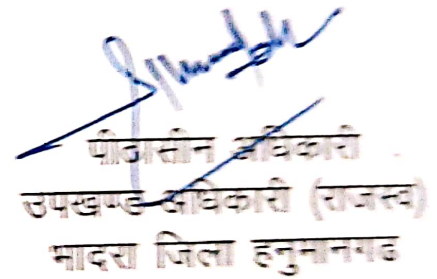 पीठासीन अधिकारी
उपखण्ड अधिकारी (राजस्व)
भादरा जिला हनुमानगढ